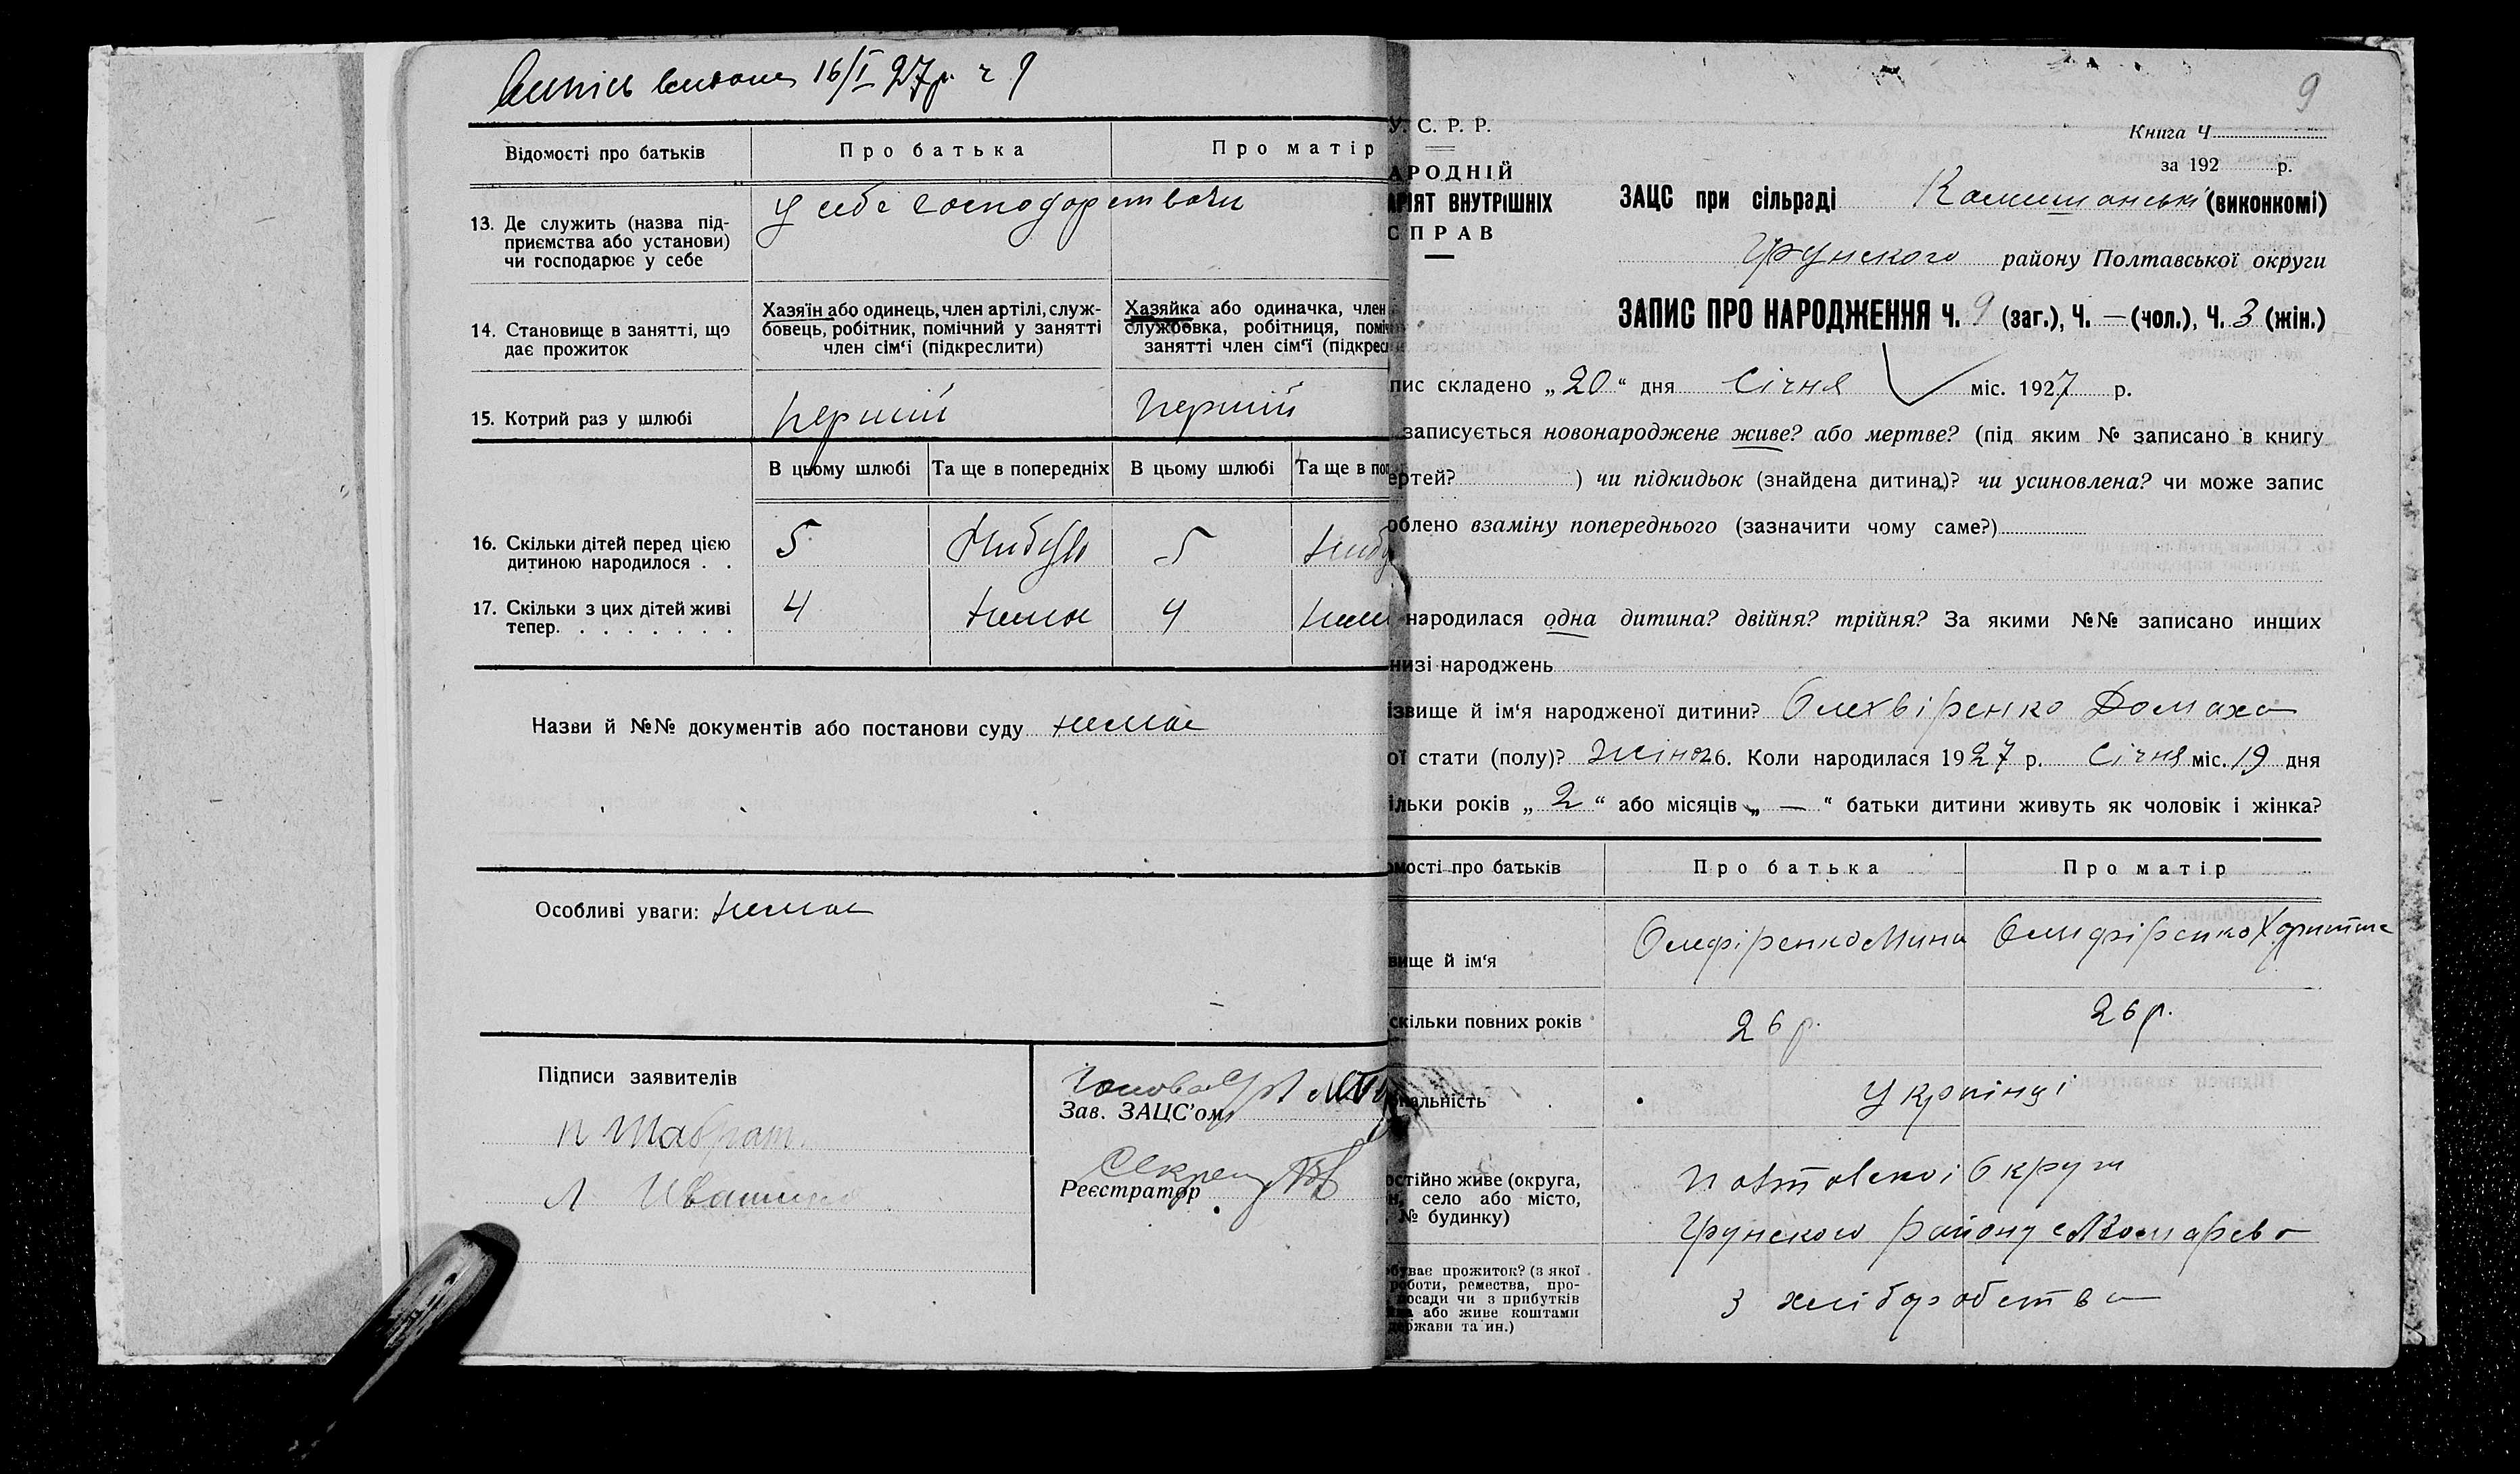 16/I 27р. ч 9
Відомості про батьків Про батька Про матір
13. Де служить (назва під-
приємства або установи)
чи господарює у себе
у себе господорстволи
14. Становище в занятті, що
дає прожиток
Хазяїн або одинець, член артілі, служ-
бовець, робітник, помічний у занятті
член сім'ї (підкреслити)
Хазяйка або одиначка, член
службовка, робітниця, поміч
занятті член сім'ї (підкрес
15. Котрий раз у шлюбі перший перший
В цьому шлюбі Та ще в попередніх В цьому шлюбі Та ще в поп
16. Скільки дітей перед цією
дитиною народилося . .
5 Нибуло 5
17. Скільки з цих дітей живі
тепер. . . . . . . .
4 нимає 4
Назви й №№ документів або постанови суду нимає
Особливі уваги: нимає
Підписи заявителів
Зав. ЗАЦС'ом
Реєстратор
9
У. С. Р. Р.
АРОДНІЙ
АРІЯТ ВНУТРІШНІХ
СПРАВ
Книга Ч
за 192 р.
ЗАЦС при сільраді Камишанські (виконкомі)
Грунского району Полтавської округи
ЗАПИС ПРО НАРОДЖЕННЯ Ч. 9 (заг.), Ч. — (чол.), Ч. 3 (жін.)
пис складено „20“ дня Січня міс. 1927 р.
записується новонароджене живе? або мертве? (під яким № записано в книгу
ертей? ) чи підкидьок (знайдена дитина)? чи усиновлена? чи може запис
облено взаміну попереднього (зазначити чому саме?)
народилася одна дитина? двійня? трійня? За якими №№ записано инших
низі народжень
ізвище й ім'я народженої дитини? Олехвіренко Домаха
ої стати (полу)? жіноч 6. Коли народилася 1927 р. Січня міс. 19 дня
ільки років „2“ або місяців „—“ батьки дитини живуть як чоловік і жінка?
омості про батьків Про батька Про матір
вище й ім'я Олефіренко Мина Олифіренко Харитина
скільки повних років 26 р. 26 р.
ональність Українці
остійно живе (округа,
н, село або місто,
№ будинку)
Полтавскої Округи
Грунского району
буває прожиток? (з якої
роботи, ремества, про-
посади чи з прибутків
йна або живе коштами
держави та ин.)
З хліборобства